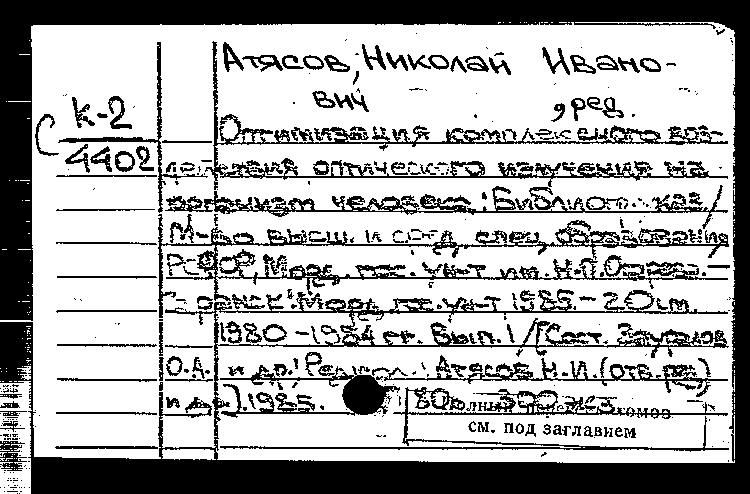 Атясов, Николай Ивано-
вич, ред.
К-2
4402
Оптимизация комплексного воз-
действия оптического излучения на
организм человека : Библиогр. указ. /
М-во высш. и сред. спец. образования
РСФСР, Морд. гос. ун-т им. Н.П. Огарева. –
Саранск : Морд. гос. ун-т 1985. – 20 см.
1980 – 1984 гг. Вып. 1 / [Сост.
О.А. и др.; Редкол.: Атясов Н.И. (отв. ред.)
и др.]. 1985. 300 экз.
см. под заглавием